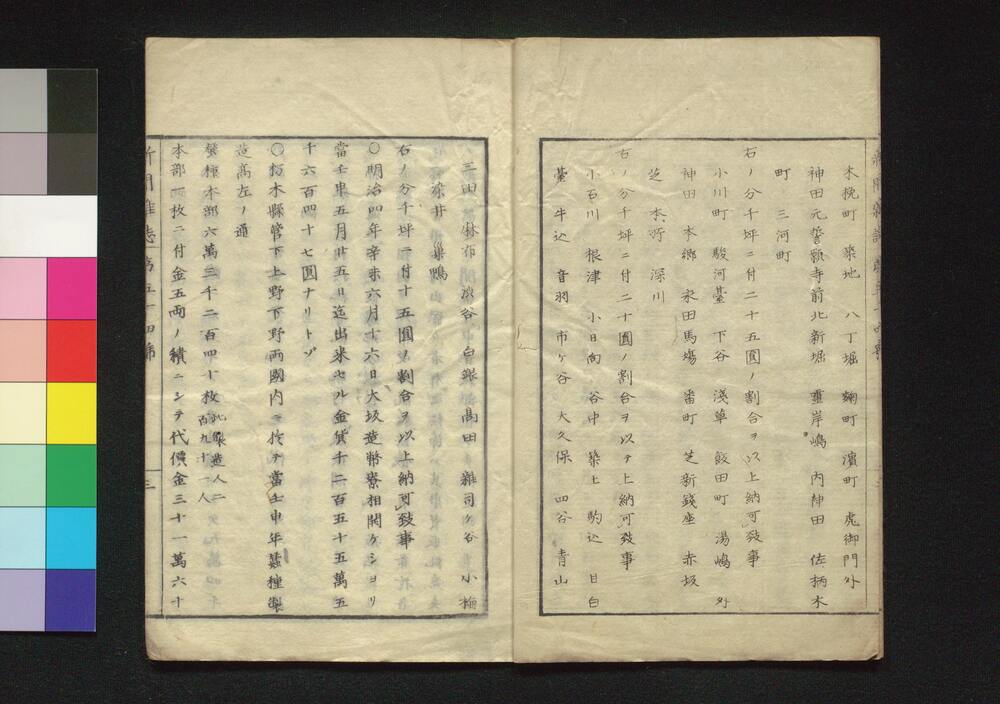 木挽町 築地 八丁堀 麹町 濱町 虎御門外
神田元誓願寺前北新堀 靈岸嶋 内神田 佐柄木
町 三河町
右ノ分千坪ニ付二十五圓ノ割合ヲ以上納可致事
小川町 駿河臺 下谷 淺草 飯田町 湯嶋 外
神田 本郷 永田馬塲 番町 芝新錢座 赤坂
芝 本所 深川
右ノ分千坪ニ付二十圓ノ割合ヲ以テ上納可致事
小石川 根津 小日向 谷中 築土 駒込 目白
臺 牛込 音羽 市ヶ谷 大久保 四谷 青山
三田 麻布 澁谷 白銀 高田 雜司ヶ谷 小梅
染井 巣鴨
右ノ分千坪ニ付十五圓ノ割合ヲ以上納可致事
〇明治四年辛未六月十六日大坂造幣寮相開ケシヨリ
當壬申五月廿五日迄出来セル金貨千二百五十五萬五
千六百四十七圓ナリトゾ
〇栃木縣管下上野下野兩國内ニ於テ當壬申年蠶種製
造高左ノ通
蠶種本部六萬三千二百四十枚 此製造人二百九十一人
本部一枚ニ付金五両ノ積ニシテ代價金三十一萬六千
新聞雜誌 第五十四號 三